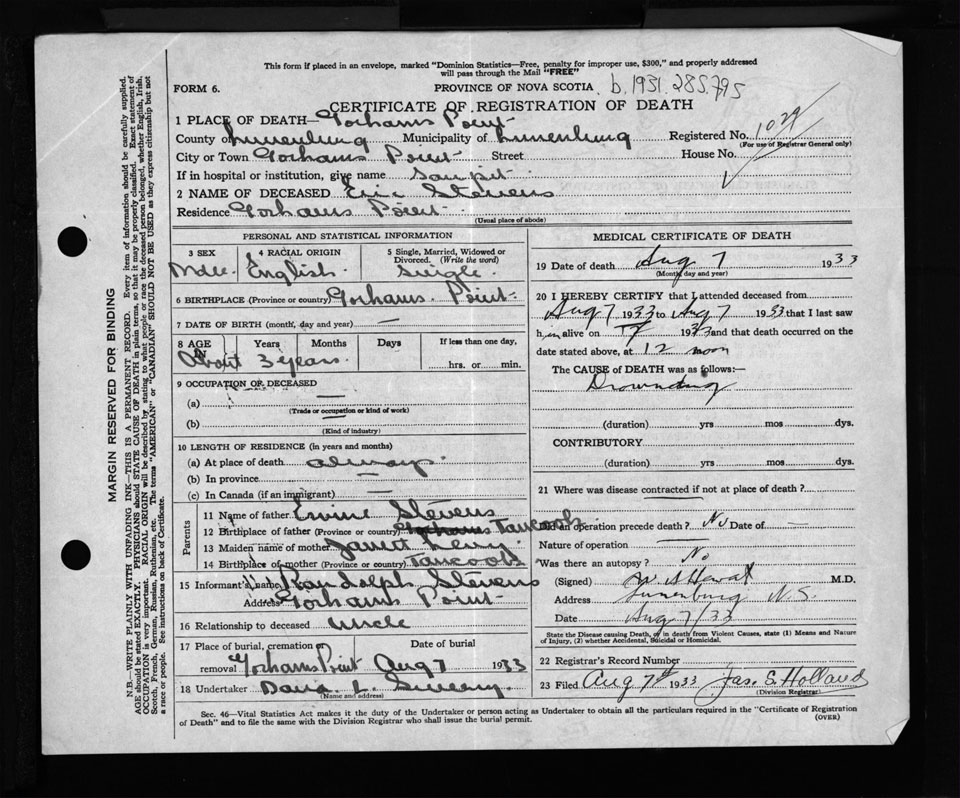 This form if placed in an envelope, marked "Dominion Statistics—Free, penalty for improper use, $300," and properly addressed
will pass through the Mail "FREE"
FORM 6.
PROVINCE OF NOVA SCOTIA b.1931.285.795
CERTIFICATE OF REGISTRATION OF DEATH
1 PLACE OF DEATH—Gorhams Point
County of Lunenburg Municipality of Lunenburg Registered No. 1029
(For use of Registrar General only)
City or Town Gorhams Point Street House No.
If in hospital or institution, give name
2 NAME OF DECEASED Stevens
Residence Gorhams Point
(Usual place of abode)
PERSONAL AND STATISTICAL INFORMATION
3 SEX 4 RACIAL ORIGIN 5 Single, Married, Widowed or
Divorced. (Write the word)
Male English Single
6 BIRTHPLACE (Province or country) Gorhams Point
7 DATE OF BIRTH (month, day and year) —
8 AGE Years Months Days If less than one day,
IN
About 3 years hrs. or min.
9 OCCUPATION OF DECEASED
(a) —
(Trade or occupation or kind of work)
(b) —
(Kind of industry)
10 LENGTH OF RESIDENCE (in years and months)
(a) At place of death always
(b) In province —
(c) In Canada (if an immigrant) —
Parents
11 Name of father Stevens
12 Birthplace of father (Province or country) Gorhams Tancook
13 Maiden name of mother
14 Birthplace of mother (Province or country) Tancook
15 Informant's name Randolph Stevens
Address Gorhams Point
16 Relationship to deceased Uncle
17 Place of burial, cremation or removal Gorhams Point Date of burial Aug 7 1933
18 Undertaker L.
(Name and address)
MEDICAL CERTIFICATE OF DEATH
19 Date of death Aug 7 1933
(Month, day and year)
20 I HEREBY CERTIFY that I attended deceased from
Aug 7 1933 to Aug 7 1933 that I last saw
h im alive on 7 1933 and that death occurred on the
date stated above, at 12 noon
The CAUSE of DEATH was as follows:—
Drowning
(duration) yrs mos dys.
CONTRIBUTORY
(duration) yrs mos dys.
21 Where was disease contracted if not at place of death?
Did an operation precede death? No Date of —
Nature of operation —
Was there an autopsy? No
(Signed) M.D.
Address Lunenburg N.S.
Date Aug 7/33
State the Disease causing Death, or in death from Violent Causes, state (1) Means and Nature
of Injury, (2) whether Accidental, Suicidal or Homicidal.
22 Registrar's Record Number
23 Filed Aug 7th 1933 Jas. S. Holland
(Division Registrar)
Sec. 46—Vital Statistics Act makes it the duty of the Undertaker or person acting as Undertaker to obtain all the particulars required in the "Certificate of Registration
of Death" and to file the same with the Division Registrar who shall issue the burial permit.
(OVER)
MARGIN RESERVED FOR BINDING
N.B.—WRITE PLAINLY WITH UNFADING INK—THIS IS A PERMANENT RECORD. Every item of information should be carefully supplied.
AGE should be stated EXACTLY. PHYSICIANS should STATE CAUSE OF DEATH in plain terms, so that it may be properly classified. Exact statement of
OCCUPATION is very important. RACIAL ORIGIN will be described by stating to what people or race the deceased person belonged, whether English, Irish,
Scotch, French, German, Russian, Ruthenian, etc. The terms "AMERICAN" or "CANADIAN" SHOULD NOT BE USED as they express citizenship but not
a race or people. See instructions on back of Certificate.